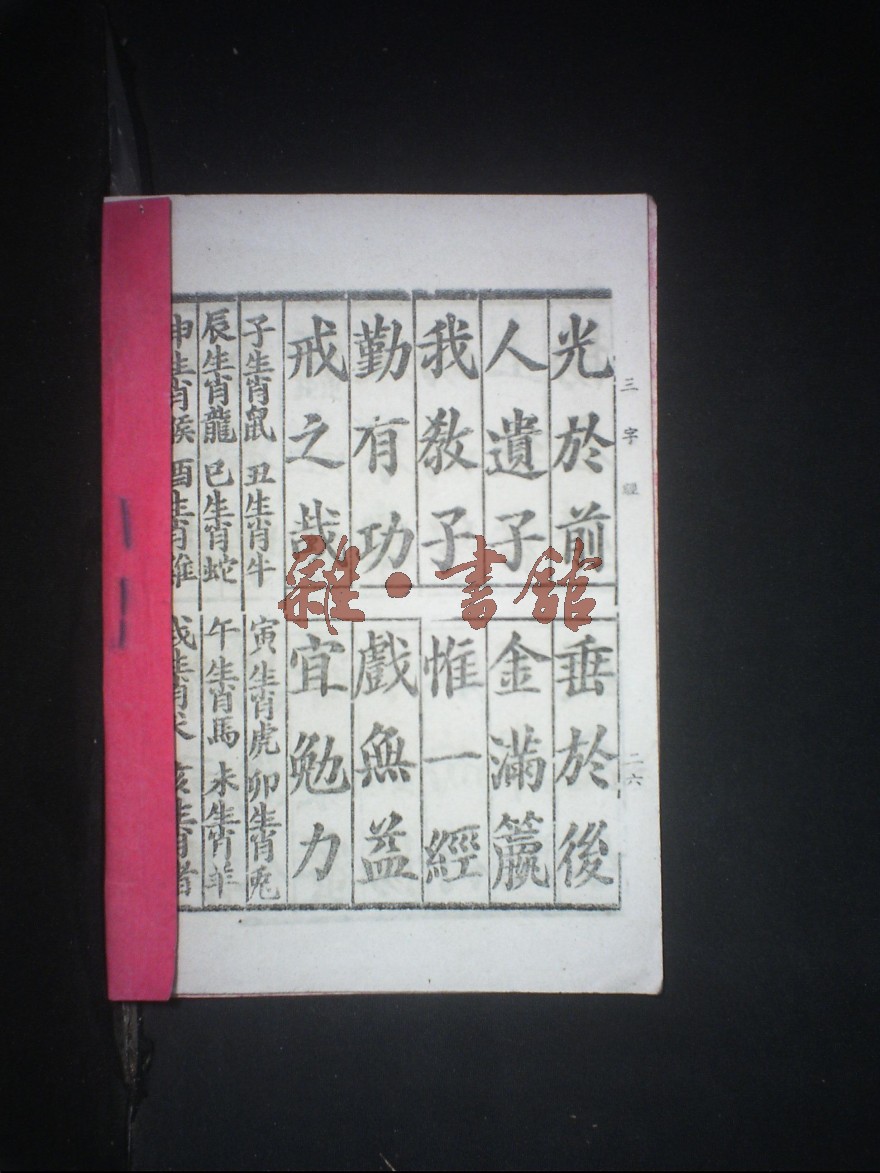 三字經
二六
光於前 垂於後
人遺子 金滿籯
我教子 惟一經
勤有功 戲無益
戒之哉 宜勉力
子生肖鼠 丑生肖牛 寅生肖虎 卯生肖兎
辰生肖龍 巳生肖蛇 午生肖馬 未生肖羊
申生肖猴 酉生肖雞 戌生肖犬 亥生肖猪
雜·書館